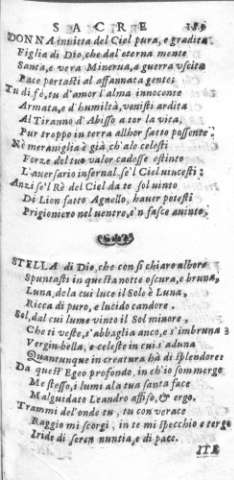 SACRE 189
DONNA invitta del Ciel pura, e gradita
Figlia di Dio, che dal'eterna mente
Santa, e vera Minerva, a guerra uscita
Pace portasti al affannata gente;
Tu di fè, tu d'amor l'alma innocente
Armata, e d'humiltà, venisti ardita
Al Tiranno d'Abisso a tor la vita,
Pur troppo in terra allhor fatto possente.
Nè meraviglia è già, ch'alo celesti
Forze del tuo valor cadesse estinto
L'aversario infernal, se'l Ciel vincesti:
Anzi se'l Rè del Ciel da te sol vinto
Di Lion fatto Agnello, haver potesti
Prigioniero nel ventro, e'n fasce avinto.
STELLA di Dio, che con sì chiaro albore
Spuntasti in questa notte oscura, e bruna,
Luna, de la cui luce il Sole è Luna,
Ricca di puro, e lucido candore.
Sol, dal cui lume vinto il Sol minore,
Che ti veste, s'abbaglia anco, e s'imbruna
Vergin bella, e celeste in cui s'aduna
Quantunque in creatura hà di splendore:
Da quest' Egeo profondo, in ch'io sommergo
Me stesso, i lumi ala tua santa face
Malguidato Leandro affiso, & ergo.
Trammi del'onde tu, tu con verace
Raggio mi scorgi, in te mi specchio e tergo
Iride di seren nuntia, e di pace.
ITE